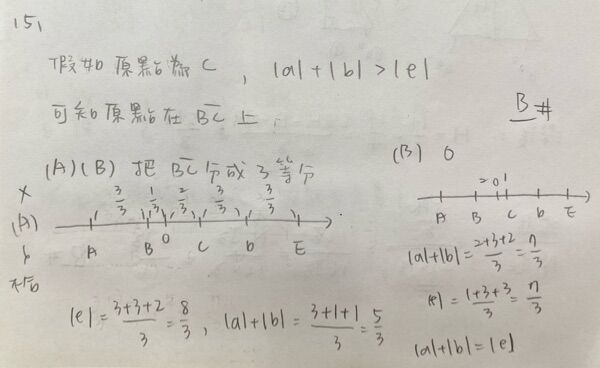 151
假如原點為 C , |a|+|b|>|e|
可知原點在 B̅C̅ 上.
B #
(A)(B) 把 B̅C̅ 分成3等分
x
(A)
3/3 1/3 2/3 3/3 3/3
A B 0 C D E
|e| = (3+3+2)/3 = 8/3 , |a|+|b| = (3+1+1)/3 = 5/3
(B) 0
2 0 1
A B C D E
|a|+|b| = (2+3+2)/3 = 7/3
|e| = (1+3+3)/3 = 7/3
|a|+|b| = |e|